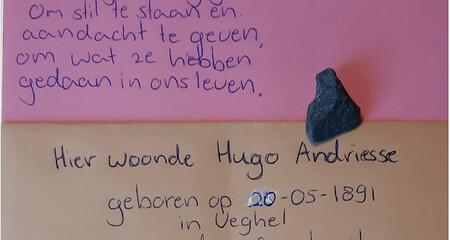 Om stil te staan en
aandacht te geven,
om wat ze hebben
gedaan in ons leven.
Hier woonde Hugo Andriesse
geboren op 20-05-1891
in Veghel